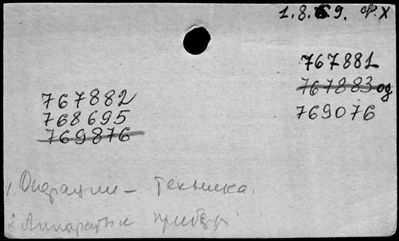 1.8.69. ф.X
767881
767883 од
769076
767882
768695
769876
1. Операции – техника.
2. Аппараты приборы